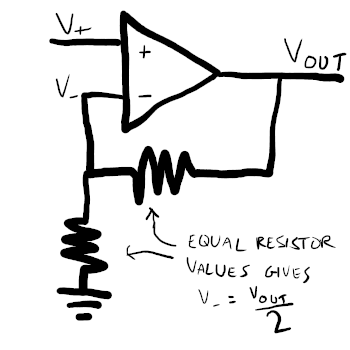 V+
+
V-
-
VOUT
EQUAL RESISTOR
VALUES GIVES
V- = VOUT/2